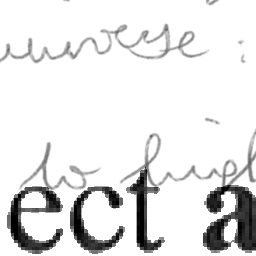 universe :
to high
ect a